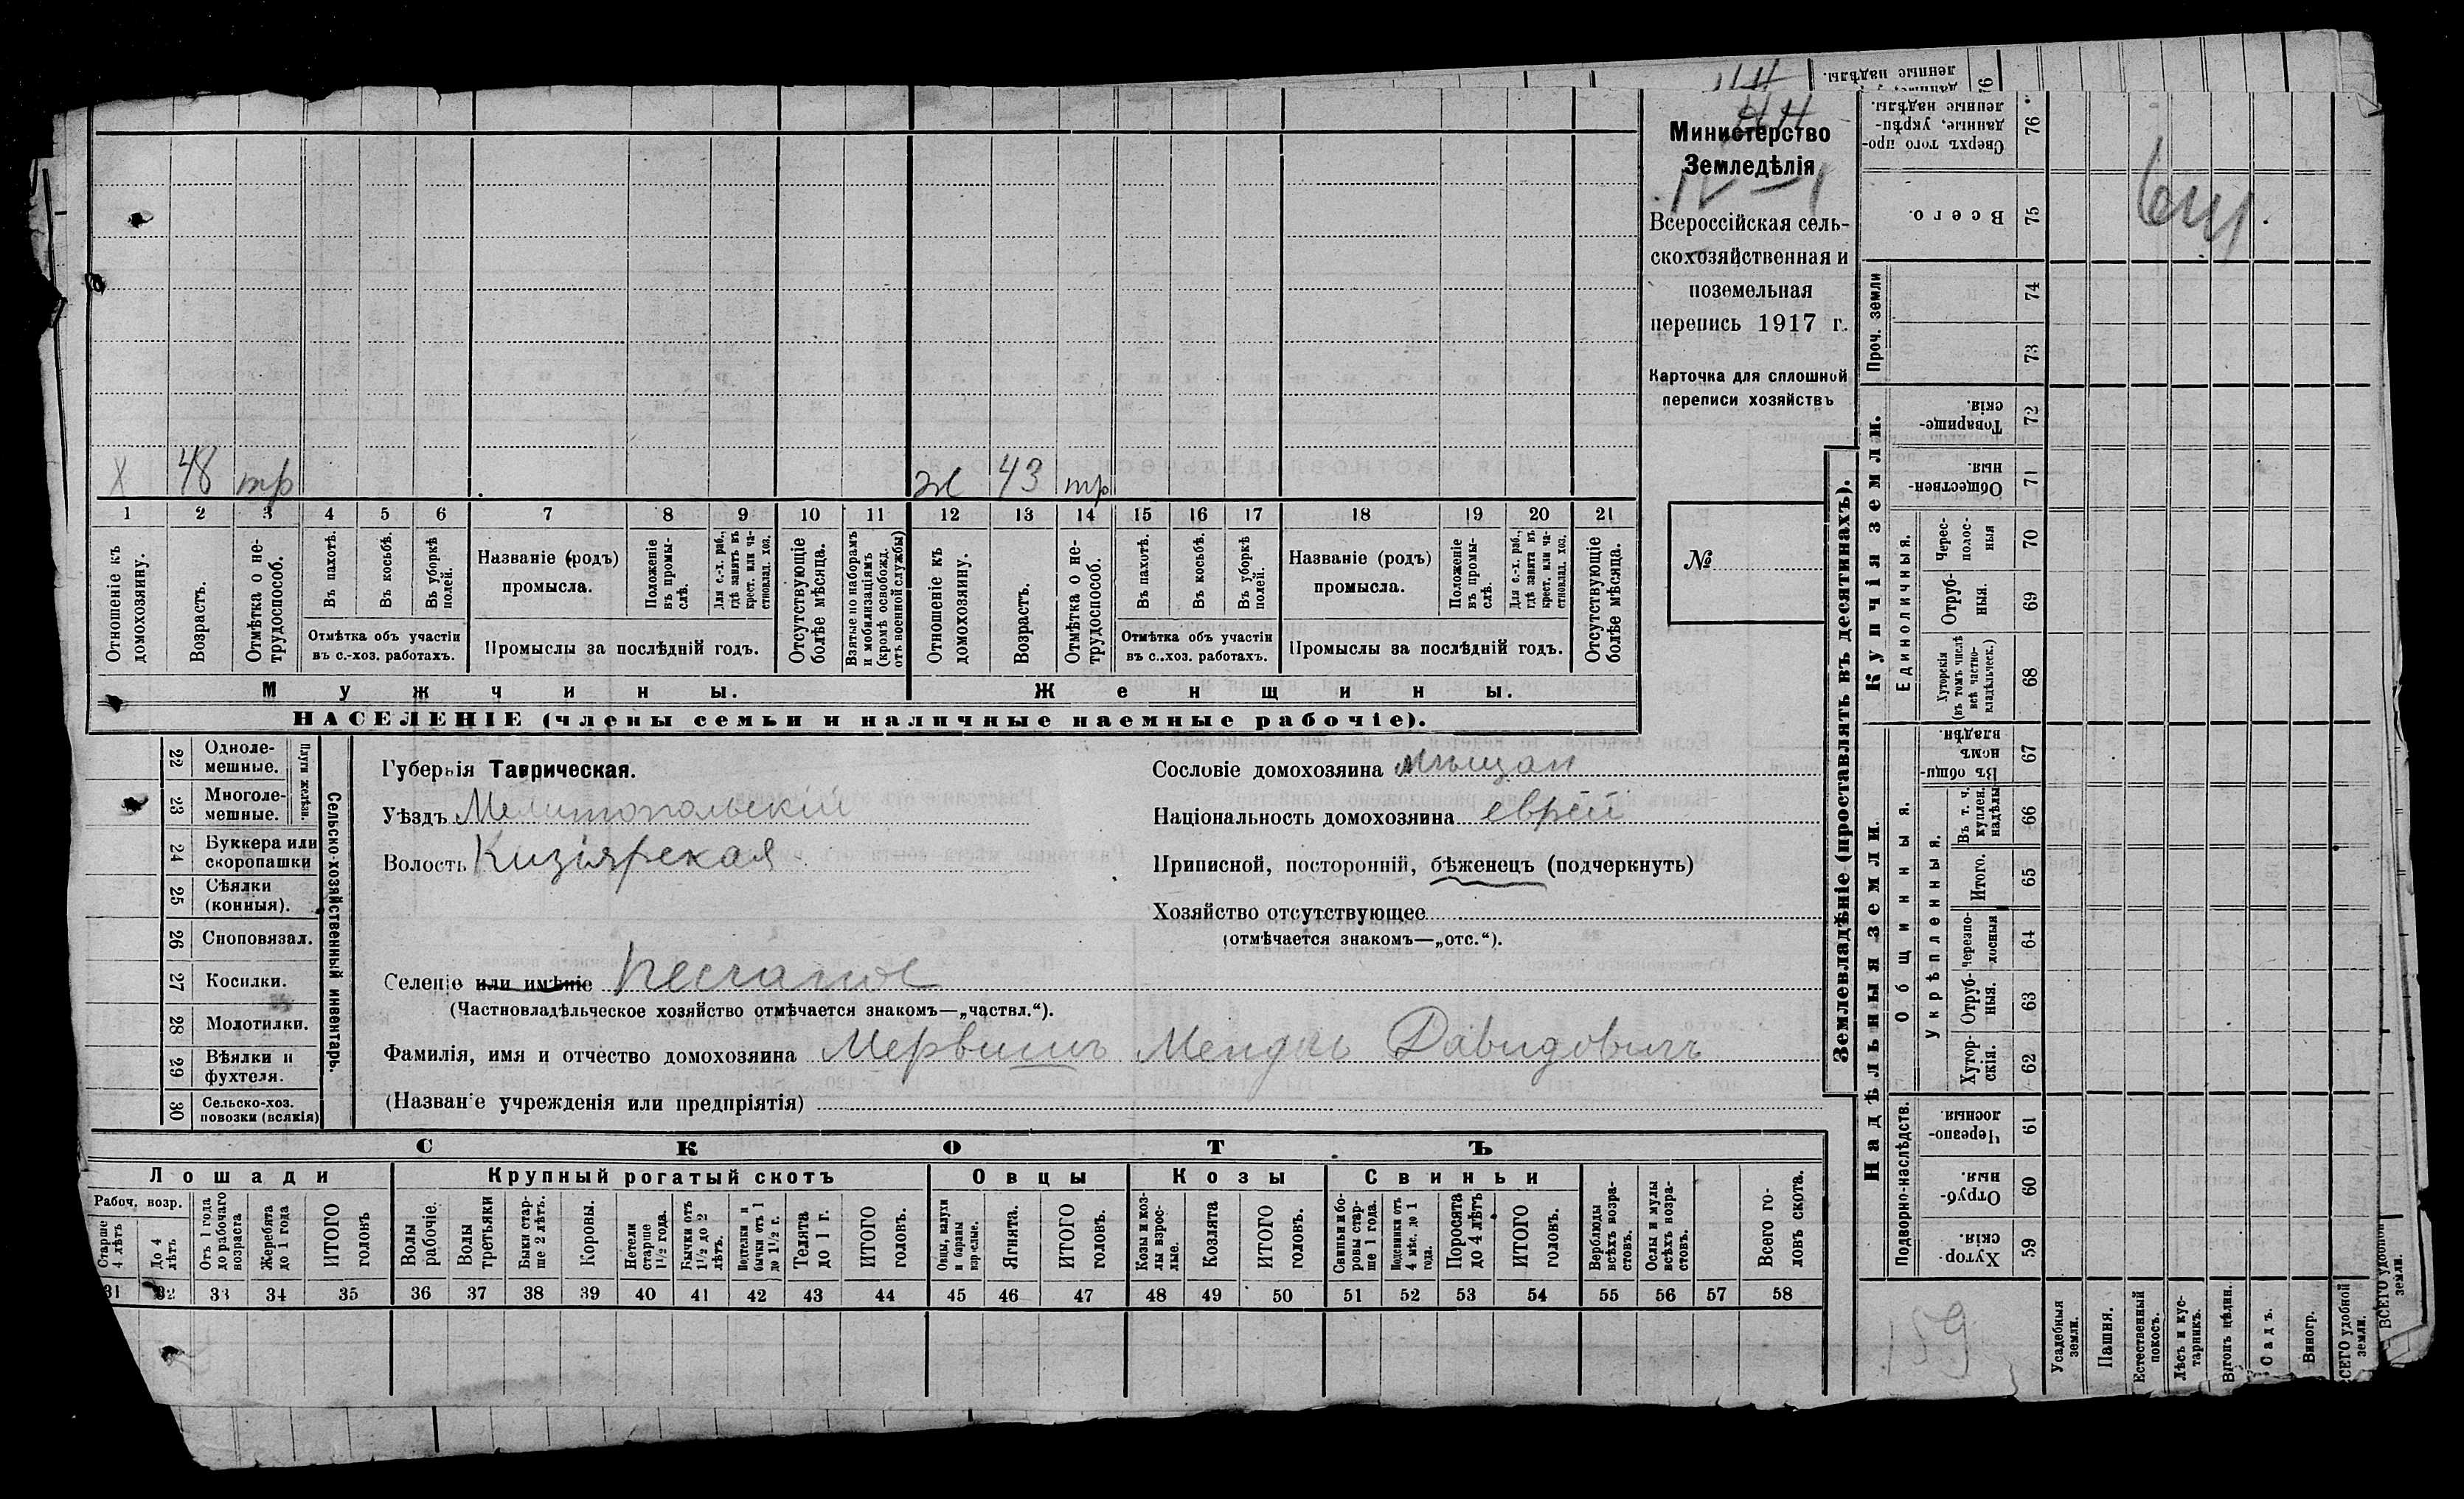 ленные надѣлы.
Х 48 тр ж 43 тр
1 2 3 4 5 6 7 8 9 10 11 12 13 14 15 16 17 18 19 20 21
Отношеніе къ домохозяину.
Возрастъ.
Отмѣтка о не-трудоспособ.
Въ пахотѣ.
Въ косьбѣ.
Въ уборкѣ полей.
Отмѣтка объ участіи
въ с.-хоз. работахъ.
Названіе (родъ)
промысла.
Положеніе въ промы-слѣ.
Для с.-х. раб., гдѣ занятъ въ крест. или ча-стновлад. хоз.
Промыслы за послѣдній годъ.
Отсутствующіе болѣе мѣсяца.
Взятые по наборамъ и мобилизаціямъ (кромѣ освобожд. отъ военной службы)
Отношеніе къ домохозяину.
Возрастъ.
Отмѣтка о не-трудоспособ.
Въ пахотѣ.
Въ косьбѣ.
Въ уборкѣ полей.
Отмѣтка объ участіи
въ с..хоз. работахъ.
Названіе (родъ)
промысла.
Положеніе въ промы-слѣ.
Для с.-х. раб., гдѣ занята въ крест. или ча-стновлад. хоз.
Промыслы за послѣдній годъ.
Отсутствующіе болѣе мѣсяца.
Мужчины.
Женщины.
НАСЕЛЕНІЕ (члены семьи и наличные наемные рабочіе).
Министерство
Земледѣлія
IV — 1
Всероссійская сель-
скохозяйственная и
поземельная
перепись 1917 г.
Карточка для сплошной
переписи хозяйствъ
№
22 Одноле-мешные.
23 Многоле-мешные.
Плуги желѣзн.
24 Буккера или скоропашки
25 Сѣялки (конныя).
26 Сноповязал.
27 Косилки.
28 Молотилки.
29 Вѣялки и фухтеля.
30 Сельско-хоз. повозки (всякія)
Сельско-хозяйственный инвентарь.
Губернія Таврическая.
Уѣздъ Мелитопольскій
Волость Кизіярская
Сословіе домохозяина мѣщан
Національность домохозяина еврей
Приписной, посторонній, бѣженецъ (подчеркнуть)
Хозяйство отсутствующее
(отмѣчается знакомъ—„отс.“).
Селеніе или имѣніе Песчаное
(Частновладѣльческое хозяйство отмѣчается знакомъ—„частвл.“).
Фамилія, имя и отчество домохозяина Мервишъ Мендель Давидовичъ
(Названіе учрежденія или предпріятія)
СКОТЪ
Лошади
Крупный рогатый скотъ
Овцы
Козы
Свиньи
Рабоч. возр.
Старше 4 лѣтъ
До 4 лѣтъ
Отъ 1 года до рабочаго возраста
Жеребята до 1 года
ИТОГО головъ
Волы рабочіе.
Волы третьяки
Быки стар-ше 2 лѣтъ.
Коровы.
Нетели старше 1 1/2 года.
Бычки отъ 1 1/2 до 2 лѣтъ.
Подтелки и бычки отъ 1 до 1 1/2 г.
Телята до 1 г.
ИТОГО головъ.
Овцы, валухи и бараны взрослые.
Ягнята.
ИТОГО головъ.
Козы и коз-лы взрос-лые.
Козлята
ИТОГО головъ.
Свиньи и бо-ровы стар-ше 1 года.
Подсвинки отъ 4 мѣс. до 1 года.
Поросята до 4 лѣтъ
ИТОГО головъ.
Верблюды всѣхъ возра-стовъ.
Ослы и мулы всѣхъ возра-стовъ.
Всего го-ловъ скота.
31 32 33 34 35 36 37 38 39 40 41 42 43 44 45 46 47 48 49 50 51 52 53 54 55 56 57 58
Землевладѣніе (проставлять въ десятинахъ).
Купчія земли.
Надѣльныя земли.
Сверхъ того про-данные, укрѣп-ленные надѣлы. 76
Всего. 75
Проч. земли
74
73
Товарище-скія. 72
Обществен-ныя. 71
Единоличныя.
Черес-полос-ныя 70
Отруб-ныя. 69
Хуторскія (въ томъ числѣ всѣ частно-владѣльческ.) 68
Общинныя.
Въ общи-номъ владѣн. 67
Укрѣпленныя.
Въ т. ч. куплен. надѣлы 66
Итого. 65
Черезпо-лосныя 64
Отруб-ныя. 63
Хутор-скія. 62
Подворно-наслѣдств.
Черезпо-лосныя 61
Отруб-ныя. 60
Хутор-скія. 59
159
Усадебныя земли.
Пашня.
Естественный покосъ.
Лѣсъ и кус-тарникъ.
Выгонъ цѣлин.
Садъ.
Виногр.
СЕГО удобной земли.
ВСЕГО удобной земли.